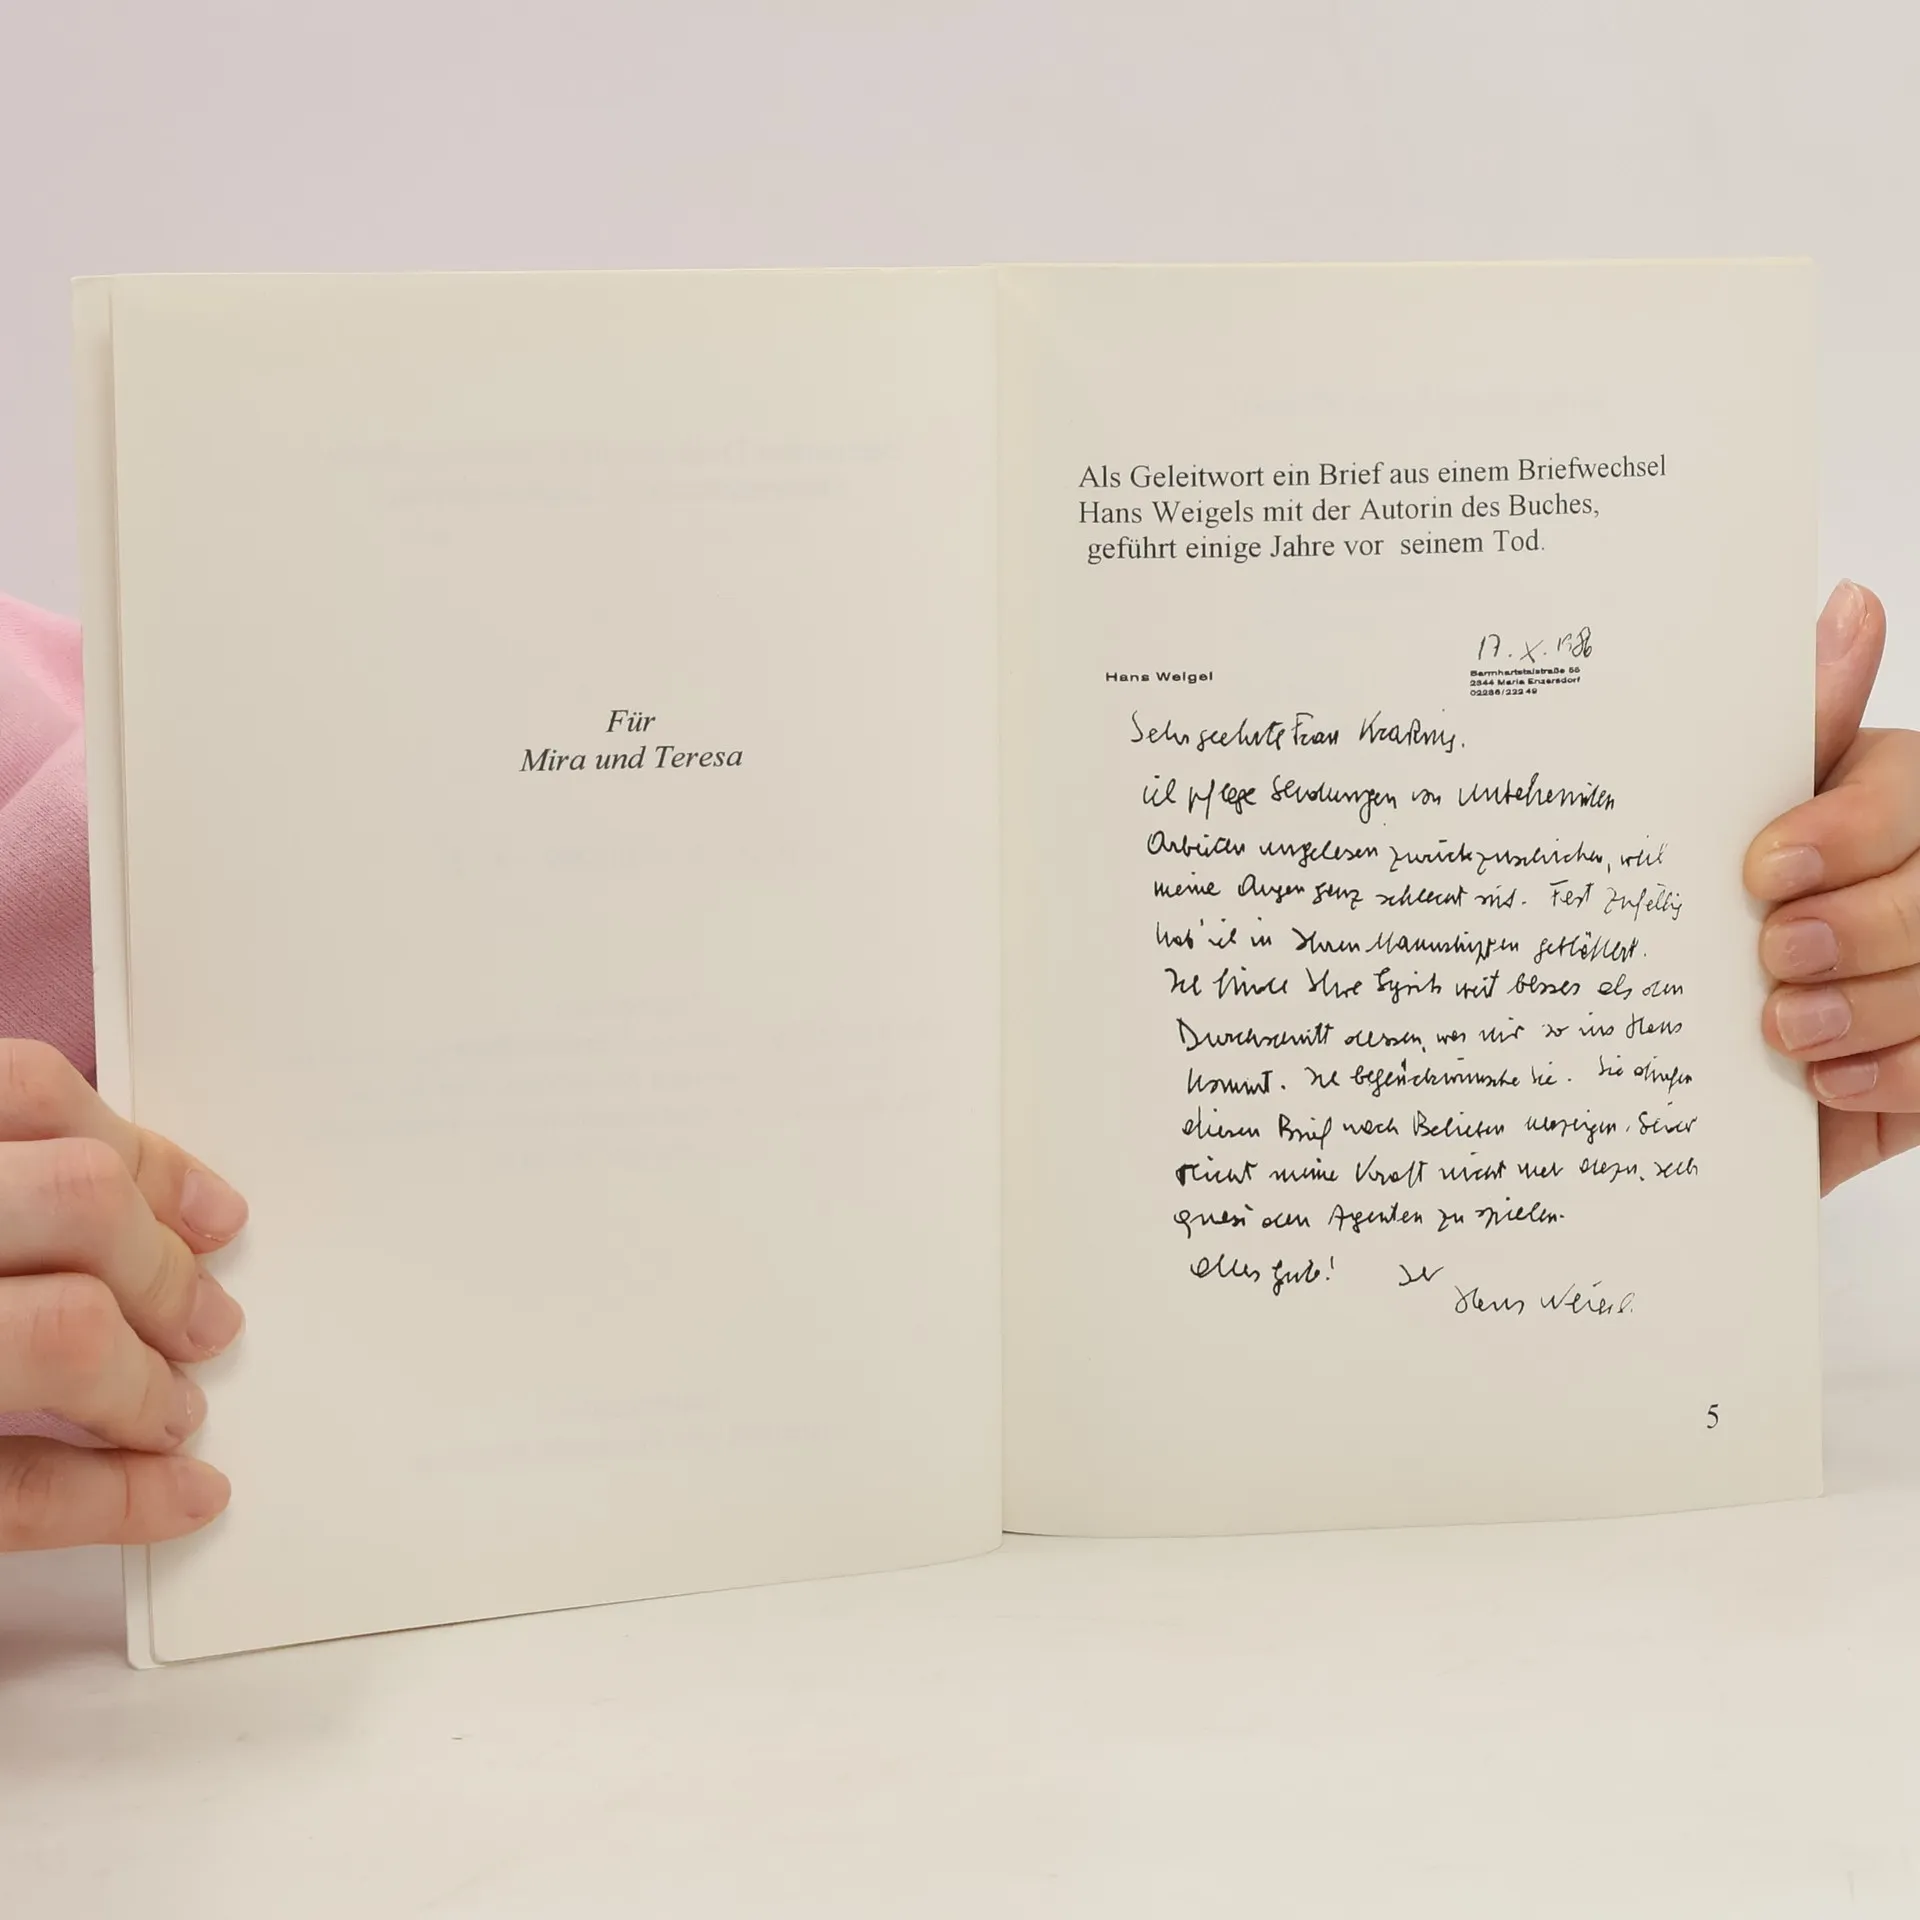 Für
Mira und Teresa
Als Geleitwort ein Brief aus einem Briefwechsel
Hans Weigels mit der Autorin des Buches,
geführt einige Jahre vor seinem Tod.
17. X. 1986
Hans Weigel
Barmhartstalstraße 55
2344 Maria Enzersdorf
02236/222 49
Sehr geehrte Frau
ich pflege Sendungen von unbekannten
Arbeiten ungelesen zurückzuschicken, weil
meine Augen ganz schlecht sind. Fast zufällig
hab' ich in Ihren Manuskripten geblättert.
Ich finde Ihre Lyrik weit besser als den
Durchschnitt dessen, was mir so ins Haus
kommt. Ich beglückwünsche Sie. Sie dürfen
diesen Brief nach Belieben vorzeigen. Leider
reicht meine Kraft nicht mehr dazu, selb
quasi den Agenten zu spielen.
Alles Gute! Ihr
Hans Weigel.
5